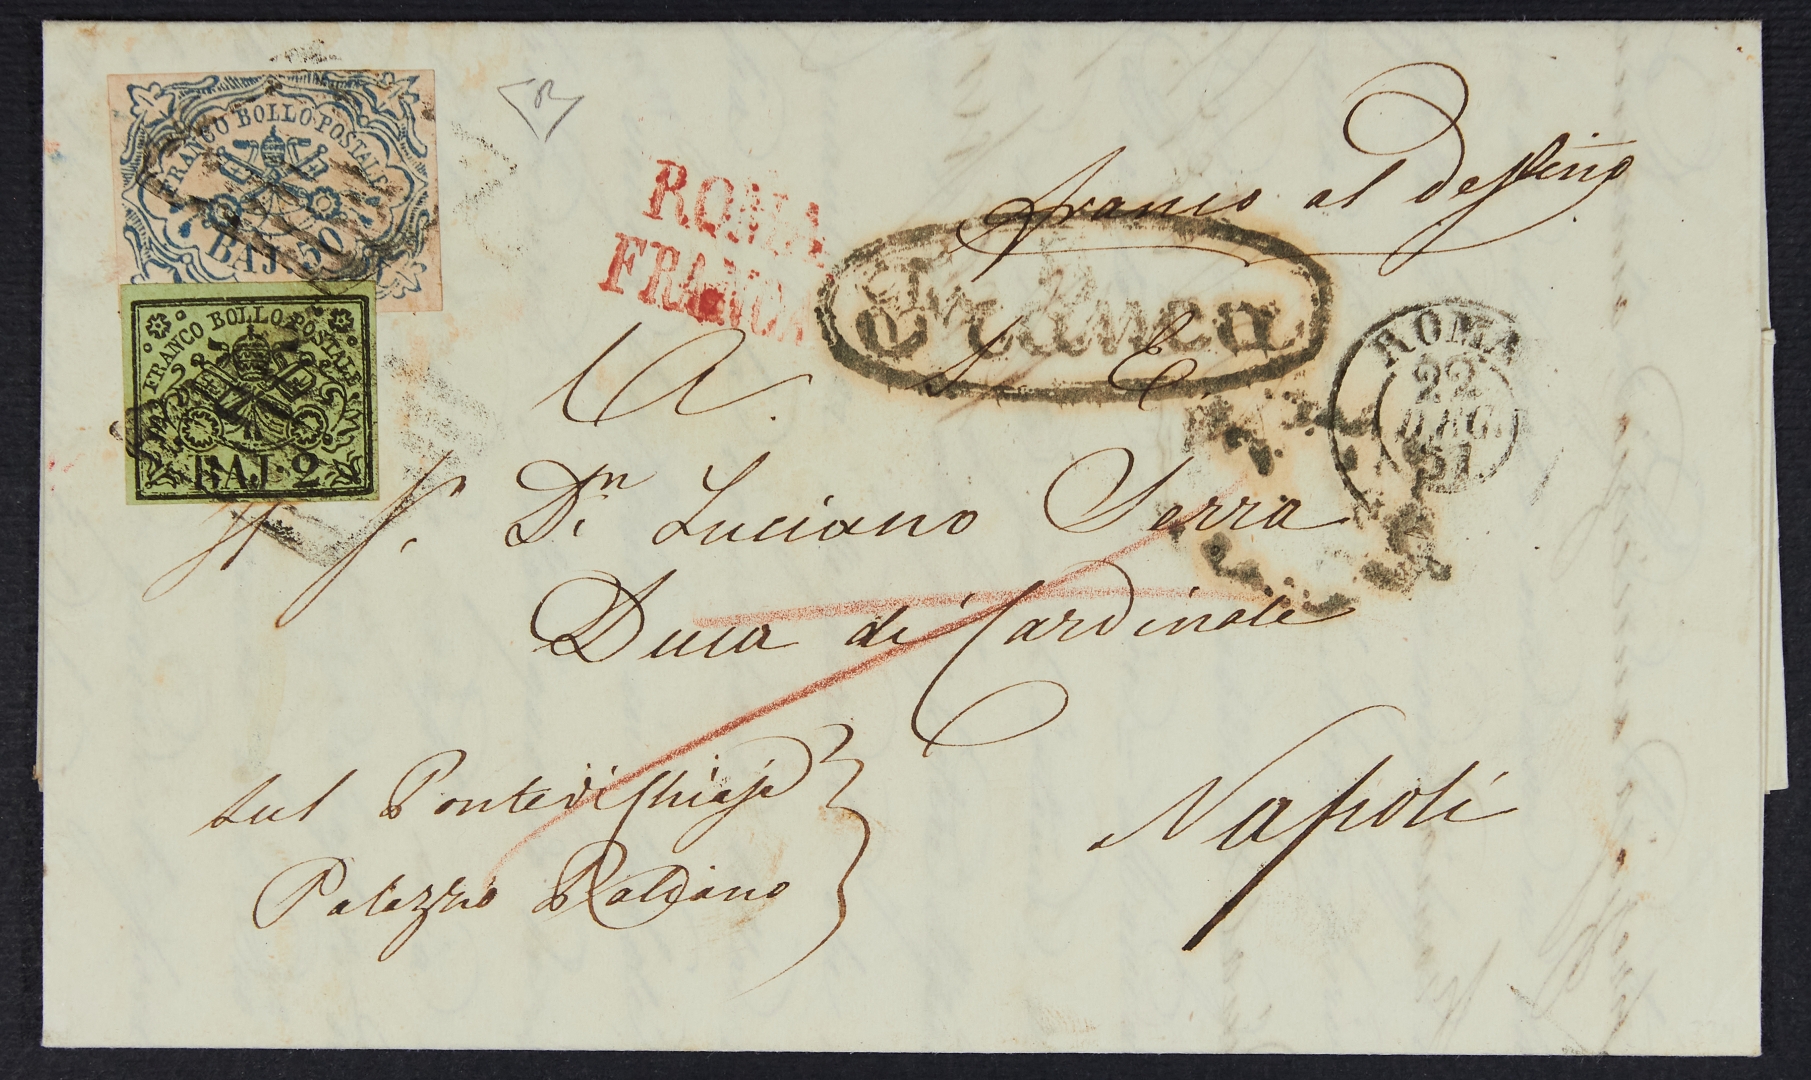 FRANCO BOLLO POSTALE
BAJ. 50
FRANCO BOLLO POSTALE
BAJ. 2
R
ROMA
FRANCA
franco al destino
Franca
ROMA
22
51
A. S. E.
Dn. Luciano Serra
Duca di Cardinale
Napoli
sul Ponte di Chiaja
Palazzo